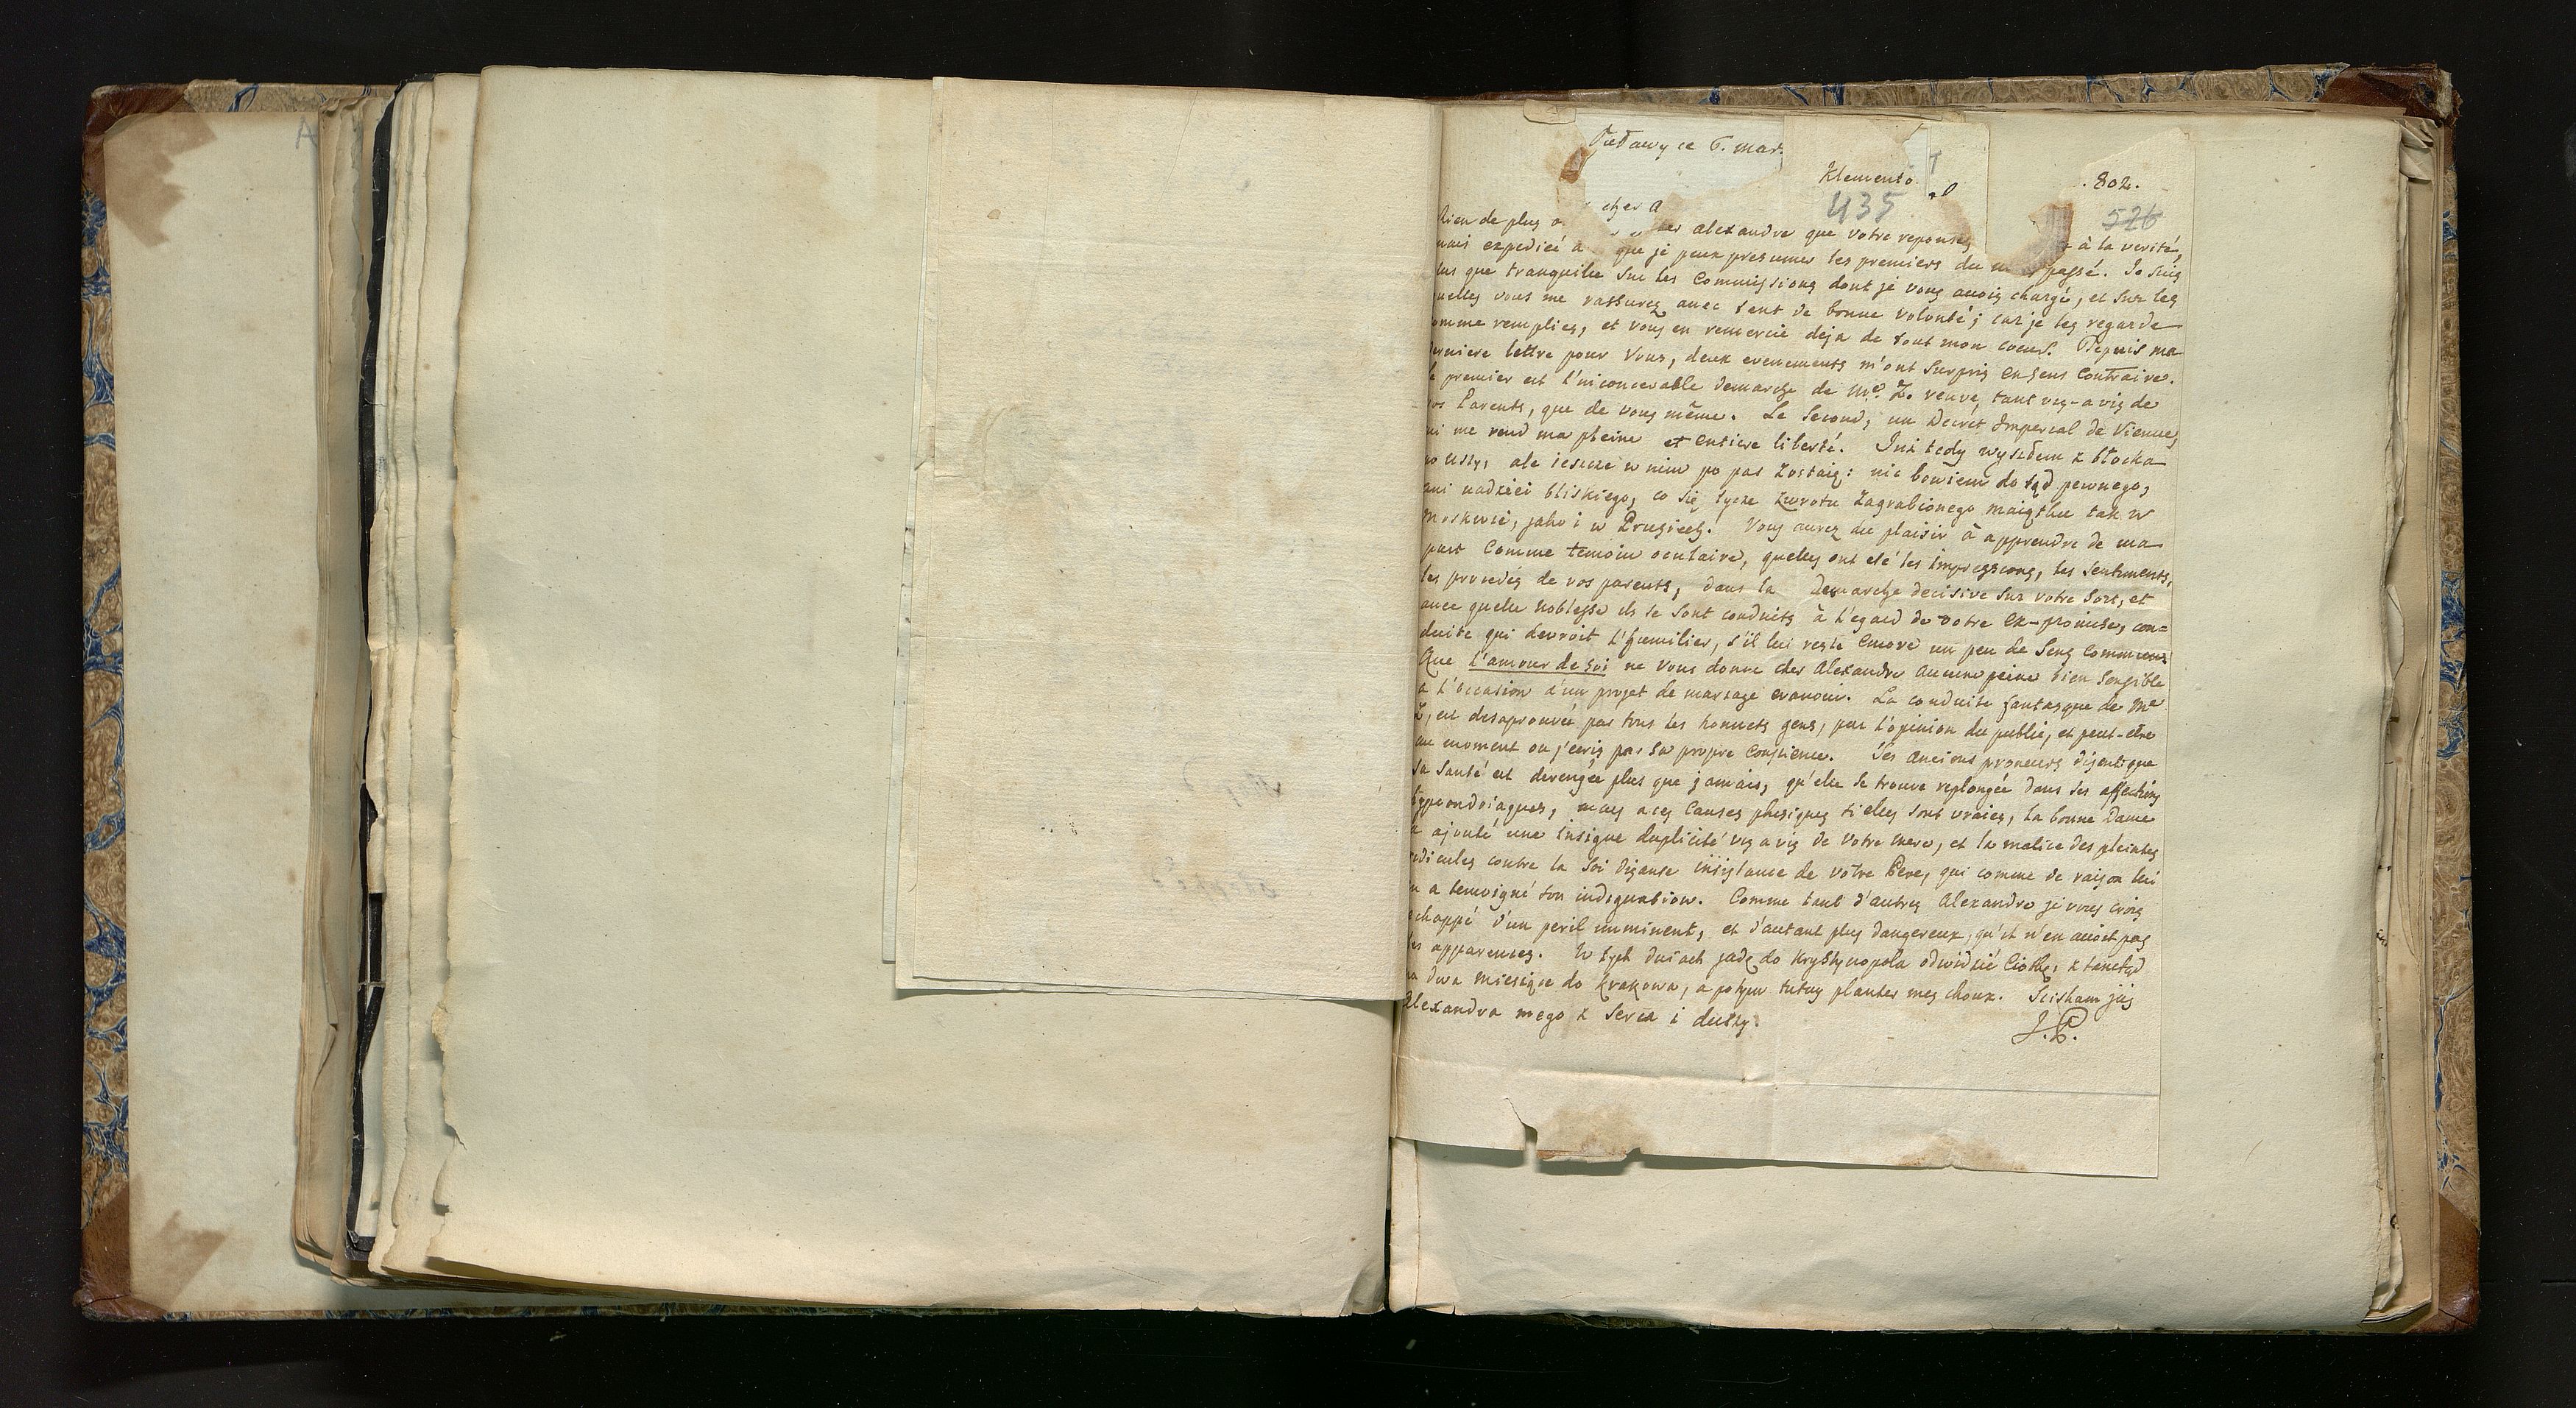 A
Puławy ce 6. mar.
Klemento
802.
435
526
cher a
Rien de plus a cher alexandre que votre reponse, à la verité,
mais expedieé a que je peux presumer les premiers du passé. Je suis
lus que tranquille sur les Commissions dont je vous avois chargé, et sur les
quelles vous me rassurez avec tent de bonne volonté; car je les regarde
comme remplies, et vous en remercie deja de tout mon coeur. Depuis ma
derniere lettre pour Vous, deux evenements m'ont surpris en sens contraire.
le premier est l'inconcevable demarche de Me. Z. veuve, tant vis-a vis de
vos Parents, que de vous même. Le second, un Decret Imperial de Vienne,
qui me rend ma pleine et entiere liberté. Już tedy wyszdem z błocka
po uszy, ale ieszcze w nim po pas zostaię: nic bowiem do tąd pewnego,
ani nadziei bliskiego, co się tycze zwrotu zagrabionego maiątku tak w
Moskwie, jako i w Prusiech. Vous aurez du plaisir à apprendre de ma
part comme temoin oculaire, quelles ont eté les impressions, les sentiments,
les procedés de vos parents, dans la Demarche decisive sur votre sort, et
avec quelle noblesse ils se sont conduits à l'egard de votre ex-promise, con=
duite qui devroit l'humilier, s'il lui reste encore un peu de sens commun.
Que l'amour de soi ne vous donne cher Alexandre aucune peine bien sensible
a l'occasion d'un projet de mariage evanoui. La conduite fantasque de Me
Z, est desaprouvée par tous les honnets gens, par l'opinion du public, et peut-etre
au moment ou j'ecris par sa propre conscience. Ses anciens proneurs disent que
sa santé est derengée plus que jamais, qu'elle se trouve replongée dans ses affections
hypocondriaques, mais a ces causes phisiques si elles sont vraies, la bonne Dame
a ajouté une insigne duplicité vis a vis de Votre mere, et la malice des pleintes
ridicules contre la soi disante insistance de votre Pere, qui comme de raison lui
en a temoigné son indignation. Comme tant d'autres Alexandre je vous crois
echappé d'un peril imminent, et d'autant plus dangereux, qu'il n'en avoit pas
les apparences. W tych dniach jadę do Krystynopola odwidzić Ciotkę, z tamtąd
na dwa miesiące do Krakowa, a potym tutay planter mes choux. Sciskam jüż
Alexandra mego z serca i duszy.
J.P.